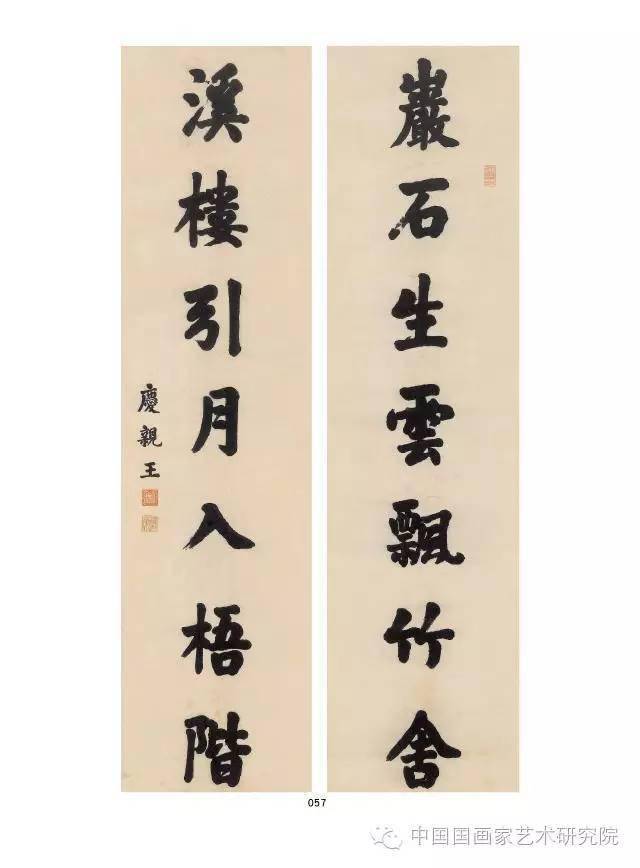 巖石生雲飄竹舍
溪樓引月入梧階
慶親王
057
中国国画家艺术研究院